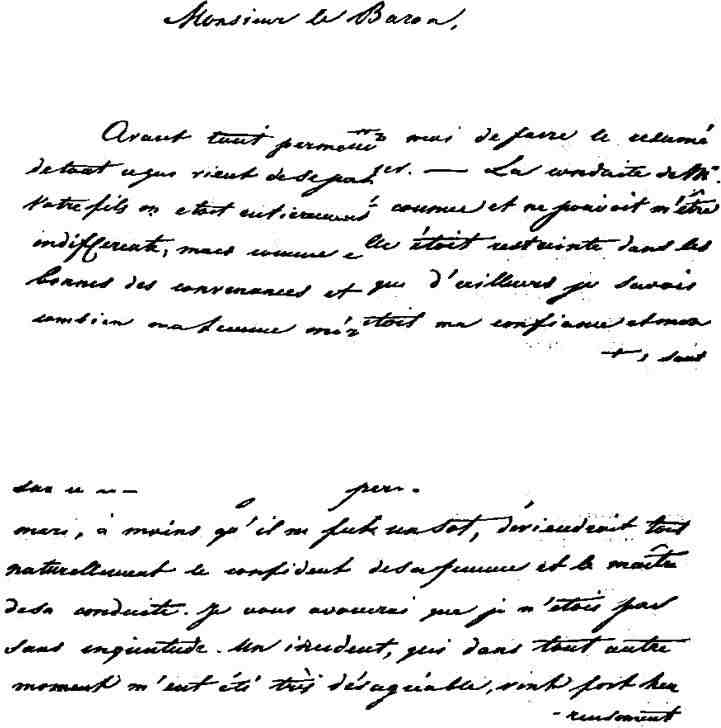 Monsieur le Baron,
Avant tout permettez moi de faire le resumé
de tout ce qui vient de se passer. — La conduite de Mr
votre fils m'etoit entierement connue et ne pouvoit m'être
indifferente, mais comme elle étoit restreinte dans les
bornes des convenances et que d'ailleurs je savois
combien ma femme méritoit ma confiance et mon
sur
mari, à moins qu'il ne fut un sot, déviendroit tout
naturellement le confident de sa femme et le maître
de sa conduite. Je vous avouerai que je n'étois pas
sans inquietude. Un incident, qui dans tout autre
moment m'eut été très désagréable, vint fort heu
-reusement